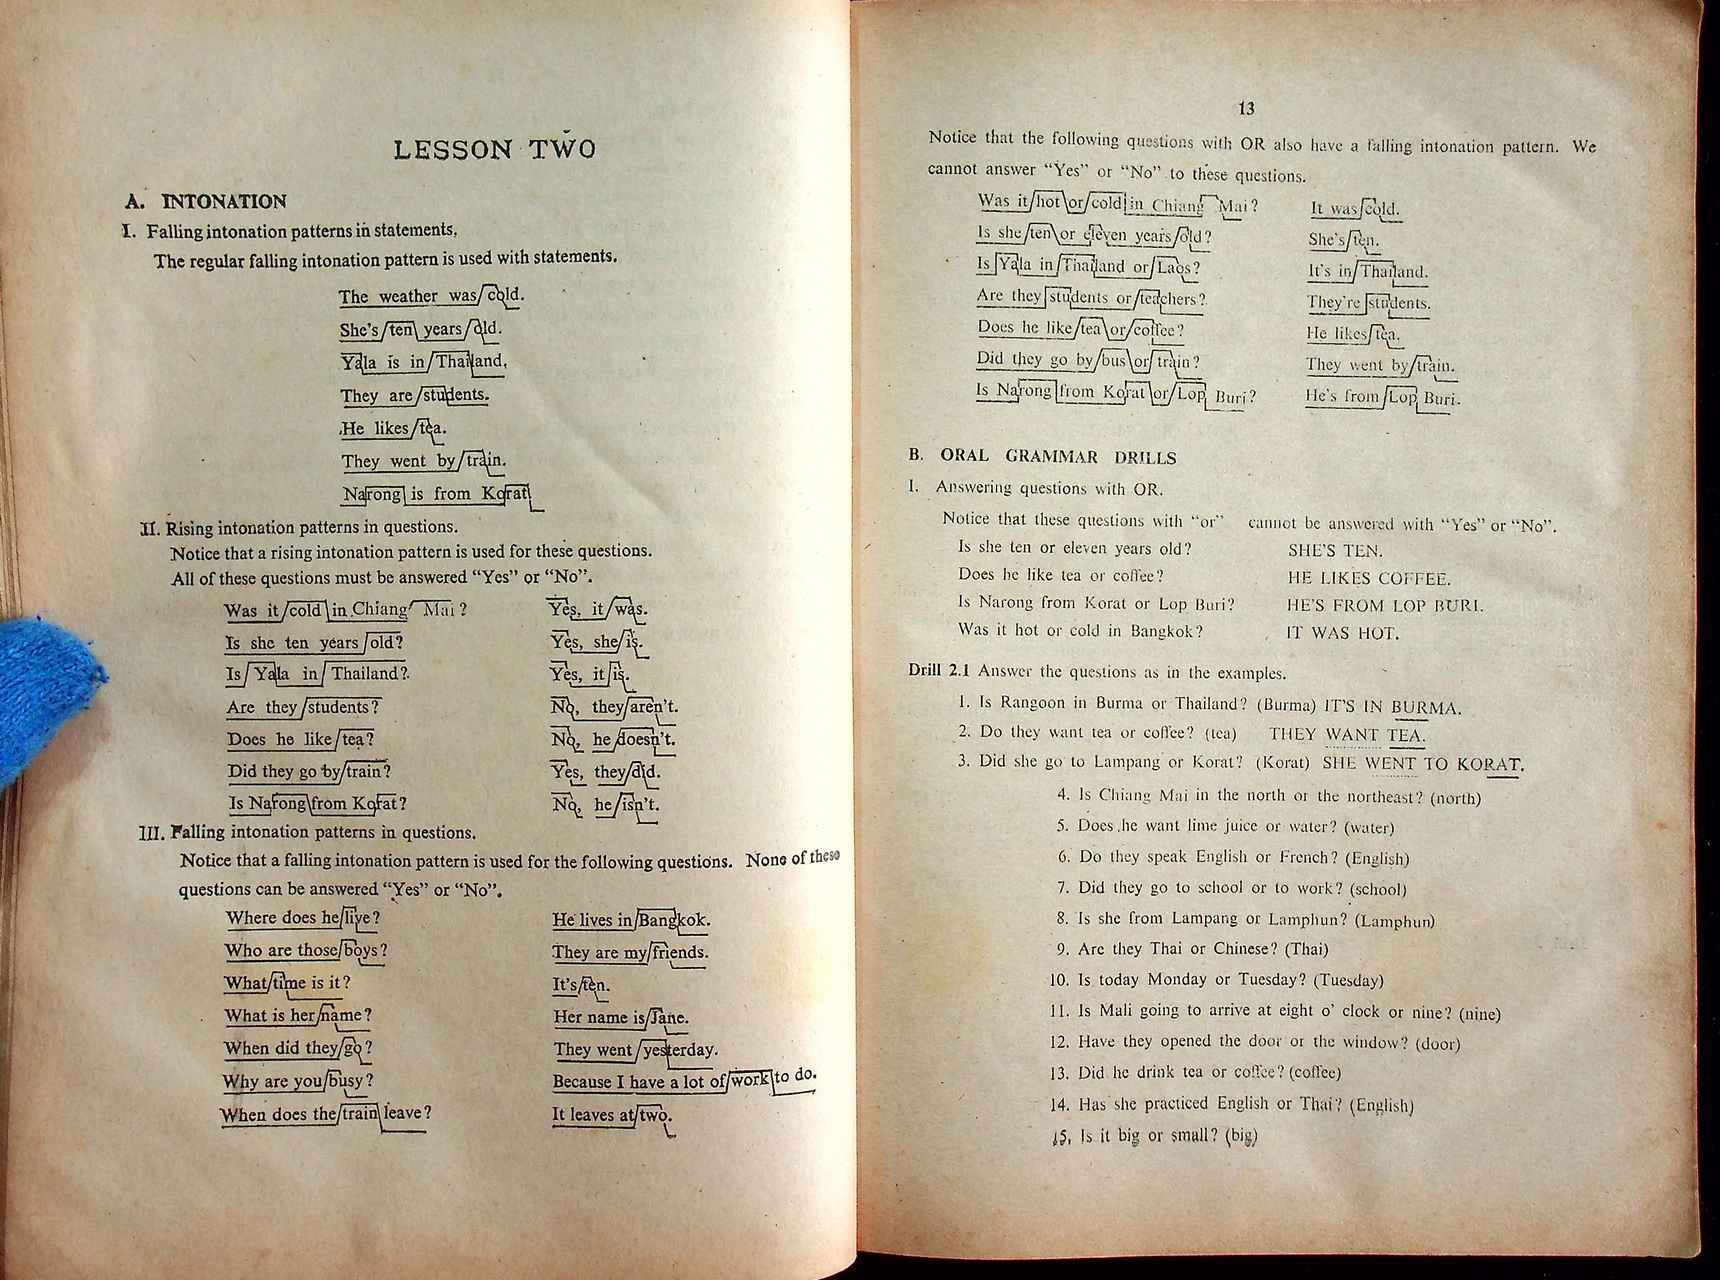 LESSON TWO
A. INTONATION
I. Falling intonation patterns in statements.
The regular falling intonation pattern is used with statements.
The weather was cold.
She's ten years old.
Yala is in Thailand.
They are students.
He likes tea.
They went by train.
Narong is from Korat
II. Rising intonation patterns in questions.
Notice that a rising intonation pattern is used for these questions.
All of these questions must be answered “Yes” or “No”.
Was it cold in Chiang Mai? Yes, it was.
Is she ten years old? Yes, she is.
Is Yala in Thailand? Yes, it is.
Are they students? No, they aren't.
Does he like tea? No, he doesn't.
Did they go by train? Yes, they did.
Is Narong from Korat? No, he isn't.
III. Falling intonation patterns in questions.
Notice that a falling intonation pattern is used for the following questions. None of these
questions can be answered “Yes” or “No”.
Where does he live? He lives in Bangkok.
Who are those boys? They are my friends.
What time is it? It's ten.
What is her name? Her name is Jane.
When did they go? They went yesterday.
Why are you busy? Because I have a lot of work to do.
When does the train leave? It leaves at two.
13
Notice that the following questions with OR also have a falling intonation pattern. We
cannot answer “Yes” or “No” to these questions.
Was it hot or cold in Chiang Mai? It was cold.
Is she ten or eleven years old? She's ten.
Is Yala in Thailand or Laos? It's in Thailand.
Are they students or teachers? They're students.
Does he like tea or coffee? He likes tea.
Did they go by bus or train? They went by train.
Is Narong from Korat or Lop Buri? He's from Lop Buri.
B. ORAL GRAMMAR DRILLS
I. Answering questions with OR.
Notice that these questions with “or” cannot be answered with “Yes” or “No”.
Is she ten or eleven years old? SHE'S TEN.
Does he like tea or coffee? HE LIKES COFFEE.
Is Narong from Korat or Lop Buri? HE'S FROM LOP BURI.
Was it hot or cold in Bangkok? IT WAS HOT.
Drill 2.1 Answer the questions as in the examples.
1. Is Rangoon in Burma or Thailand? (Burma) IT'S IN BURMA.
2. Do they want tea or coffee? (tea) THEY WANT TEA.
3. Did she go to Lampang or Korat? (Korat) SHE WENT TO KORAT.
4. Is Chiang Mai in the north or the northeast? (north)
5. Does he want lime juice or water? (water)
6. Do they speak English or French? (English)
7. Did they go to school or to work? (school)
8. Is she from Lampang or Lamphun? (Lamphun)
9. Are they Thai or Chinese? (Thai)
10. Is today Monday or Tuesday? (Tuesday)
11. Is Mali going to arrive at eight o' clock or nine? (nine)
12. Have they opened the door or the window? (door)
13. Did he drink tea or coffee? (coffee)
14. Has she practiced English or Thai? (English)
15. Is it big or small? (big)